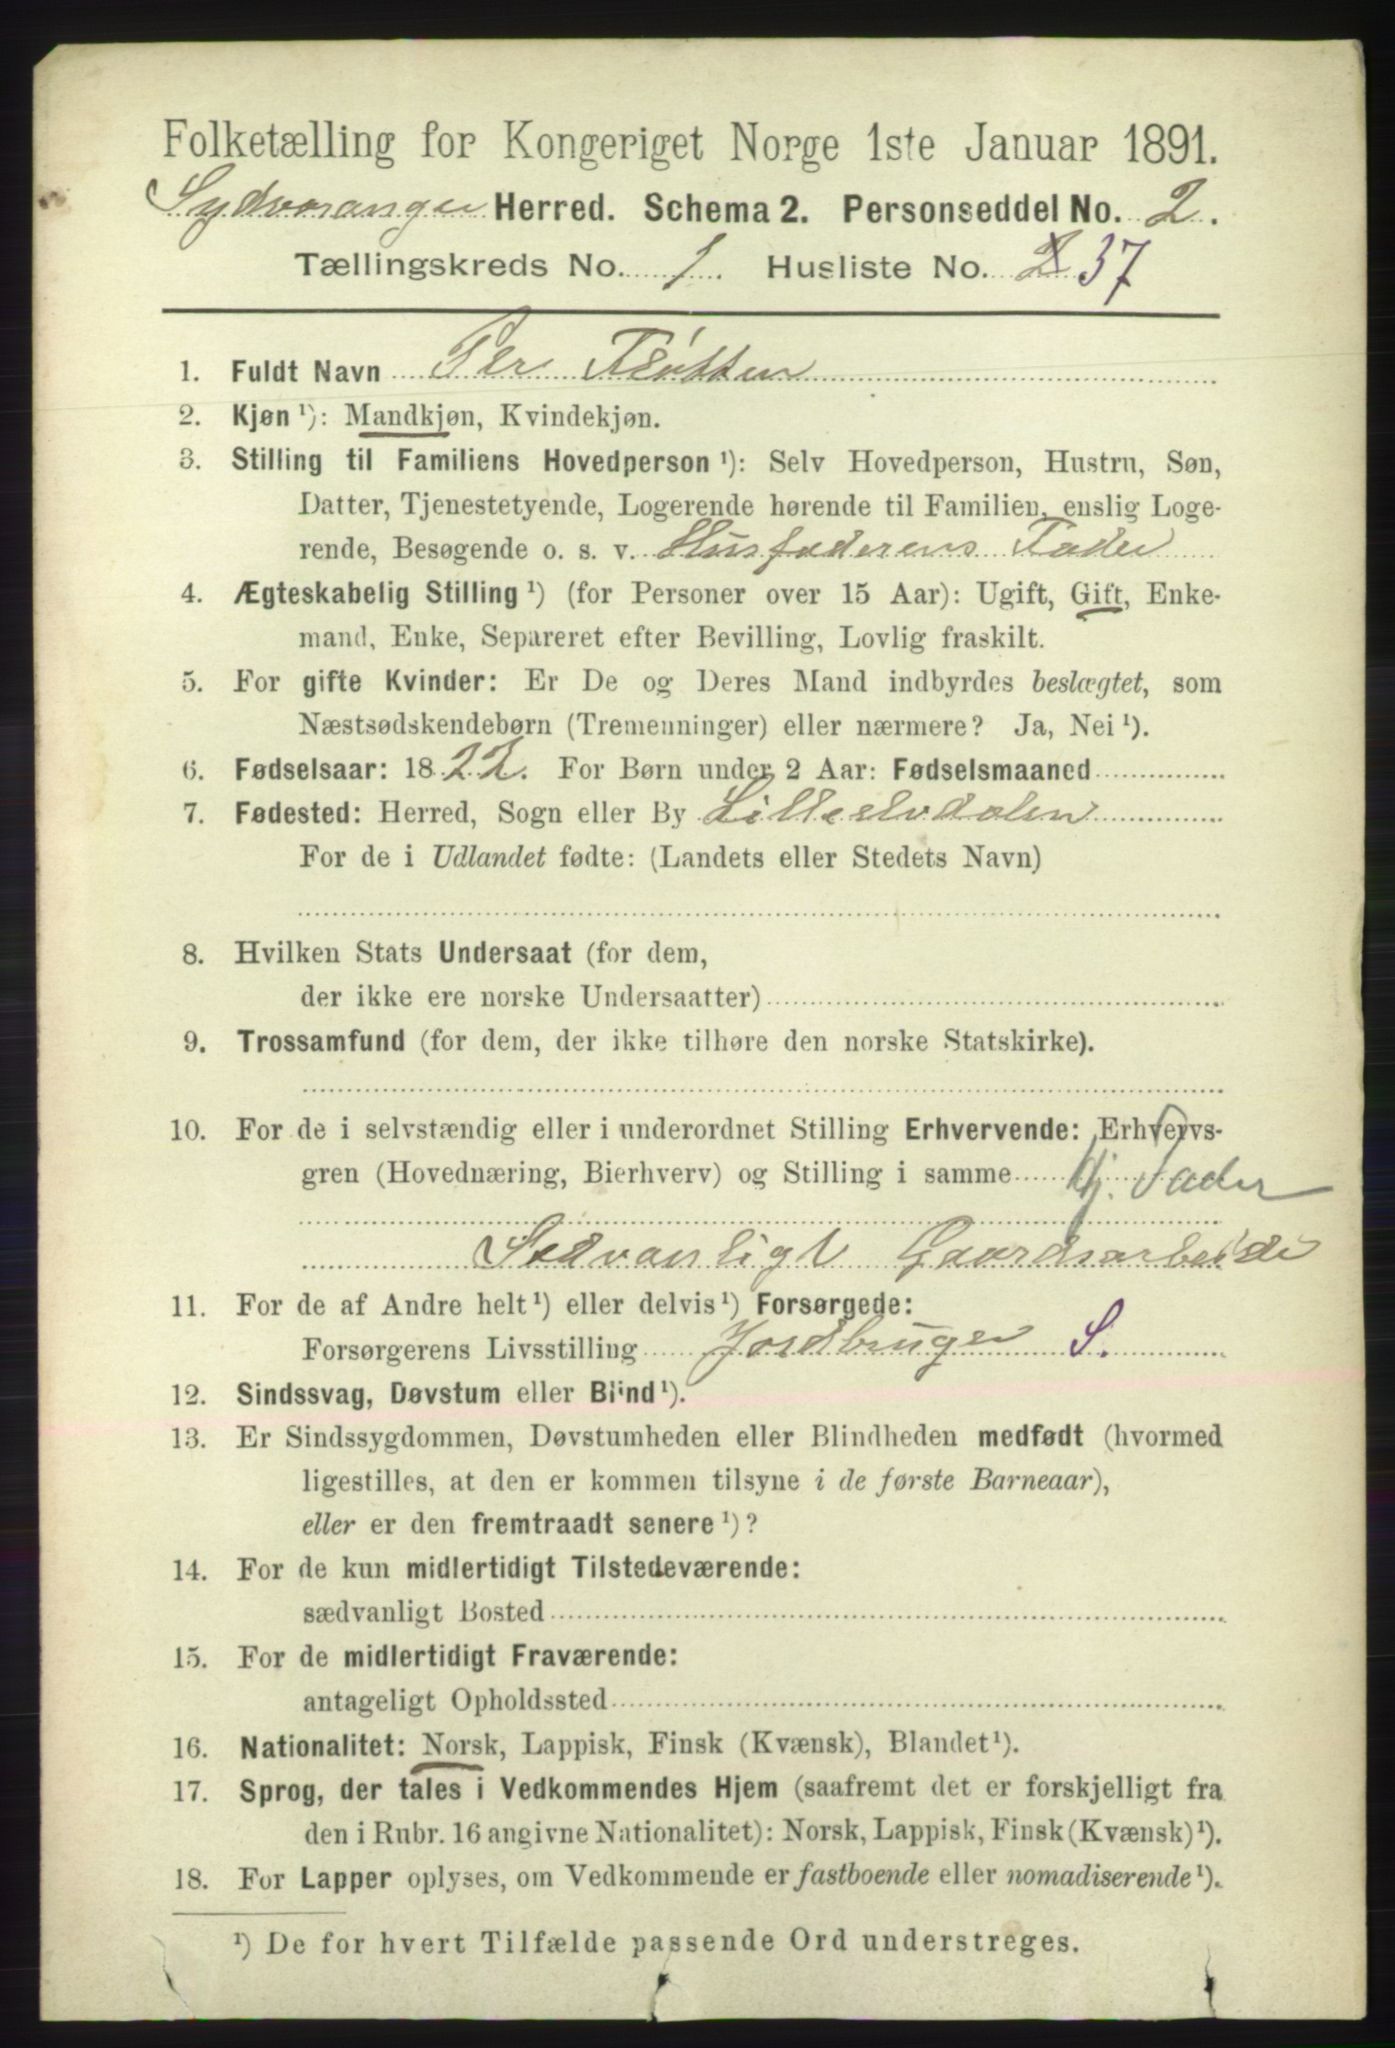 Folketælling for Kongeriget Norge 1ste Januar 1891.
Sydvaranger Herred. Schema 2. Personseddel No. 2.
Tællingskreds No. 1. Husliste No. 2 37
1. Fuldt Navn Per Fløtten
2. Kjøn ¹): Mandkjøn, Kvindekjøn.
3. Stilling til Familiens Hovedperson ¹): Selv Hovedperson, Hustru, Søn,
Datter, Tjenestetyende, Logerende hørende til Familien, enslig Loge-
rende, Besøgende o. s. v. Husfaderens Fader
4. Ægteskabelig Stilling ¹) (for Personer over 15 Aar): Ugift, Gift, Enke-
mand, Enke, Separeret efter Bevilling, Lovlig fraskilt.
5. For gifte Kvinder: Er De og Deres Mand indbyrdes beslægtet, som
Næstsødskendebørn (Tremenninger) eller nærmere? Ja, Nei ¹).
6. Fødselsaar: 1822. For Børn under 2 Aar: Fødselsmaaned
7. Fødested: Herred, Sogn eller By Lilleelvdalen
For de i Udlandet fødte: (Landets eller Stedets Navn)
8. Hvilken Stats Undersaat (for dem,
der ikke ere norske Undersaatter)
9. Trossamfund (for dem, der ikke tilhøre den norske Statskirke).
10. For de i selvstændig eller i underordnet Stilling Erhvervende: Erhvervs-
gren (Hovednæring, Bierhverv) og Stilling i samme Hj. Fader
Sedvanligt Gaardsarbeide
11. For de af Andre helt ¹) eller delvis ¹) Forsørgede:
Forsørgerens Livsstilling Jordbruger S.
12. Sindssvag, Døvstum eller Blind ¹).
13. Er Sindssygdommen, Døvstumheden eller Blindheden medfødt (hvormed
ligestilles, at den er kommen tilsyne i de første Barneaar),
eller er den fremtraadt senere ¹)?
14. For de kun midlertidigt Tilstedeværende:
sædvanligt Bosted
15. For de midlertidigt Fraværende:
antageligt Opholdssted
16. Nationalitet: Norsk, Lappisk, Finsk (Kvænsk), Blandet ¹).
17. Sprog, der tales i Vedkommendes Hjem (saafremt det er forskjelligt fra
den i Rubr. 16 angivne Nationalitet): Norsk, Lappisk, Finsk (Kvænsk) ¹).
18. For Lapper oplyses, om Vedkommende er fastboende eller nomadiserende ¹).
¹) De for hvert Tilfælde passende Ord understreges.